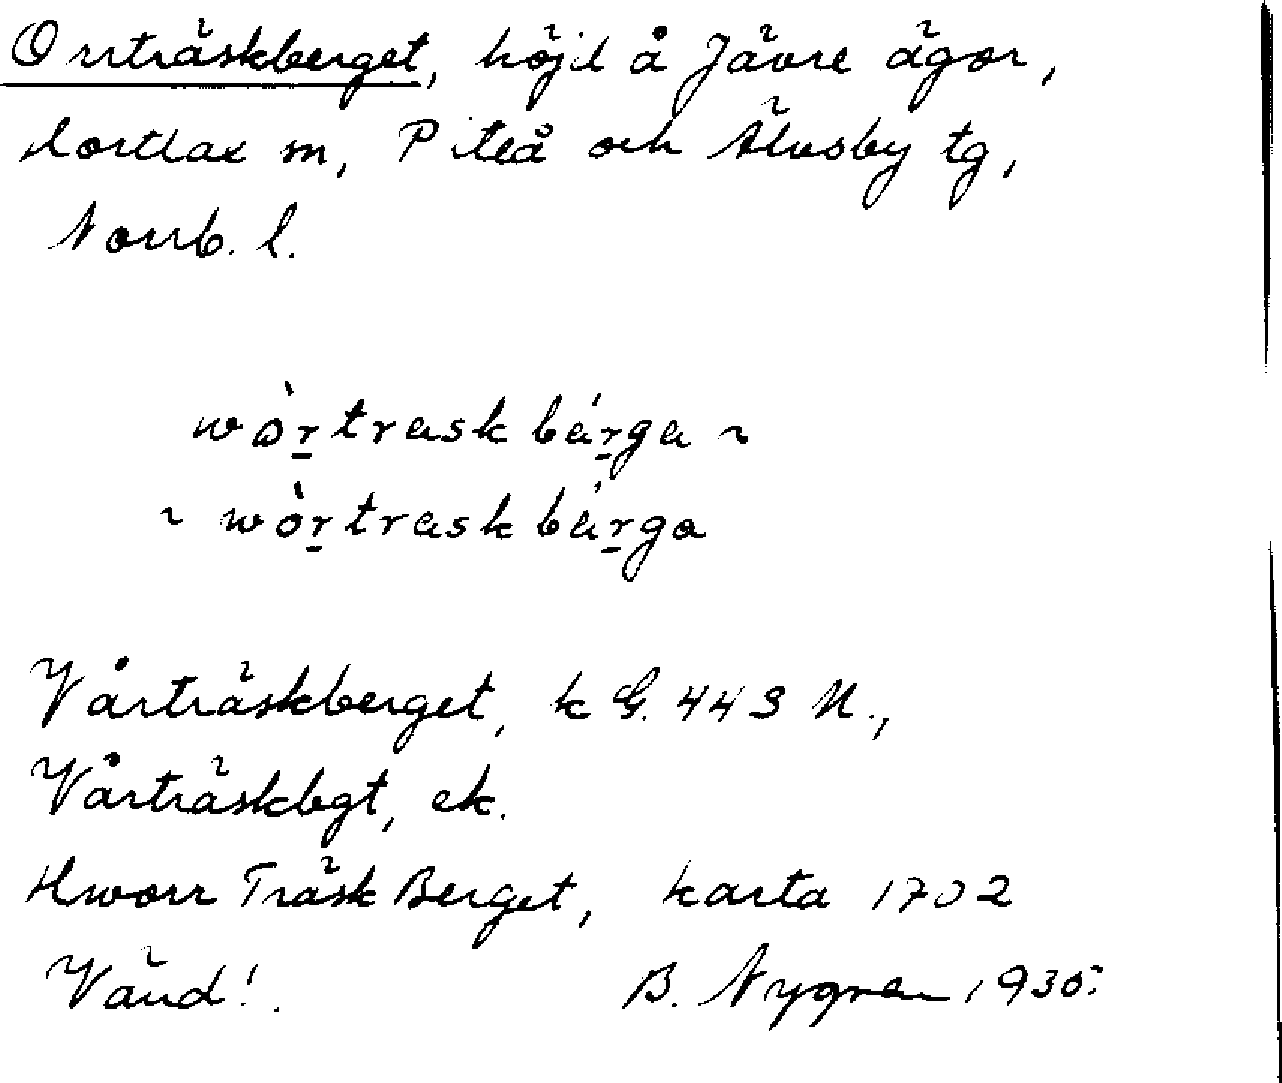 Orrträskberget, höjd å Jävre ägor,
Hortlax sn, Piteå och Älvsby tg,
Norrb. l.
wòr̲traskbár̲ga ~
~ wòr̲traskbár̲ga
Vårträskberget, k G. 443 N.,
Vårträskbgt, ek.
Hworr Träsk Berget, karta 1702
Vänd!. B. Nygren 1935.